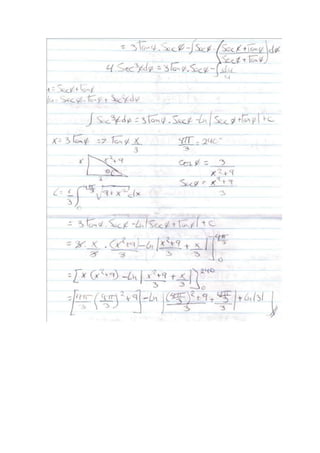 = 3Tanø.Secø-∫Secø.(Secø+Tanø)/(Secø+Tanø) dø
4 Sec³ødø = 3Tanø.Secø-∫du/u
u = Secø+Tanø
du = Secø.Tanø+Sec²ødø
∫Sec³ødø = 3Tanø.Secø-ln|Secø+Tanø|+C
x = 3Tanø => Tanø x/3 4π/3 = 240°
x x²+9 3 ø
Cosø = 3/x²+9
Secø = x²+9/3
L = 1/3 ∫₀^4π/3 √9+x² dx
= 3Tanø.Secø-ln|Secø+Tanø|+C
= 3.x/3.(x²+9)/3-ln|x²+9/3+x/3| |₀^4π/3
= [x(x²+9)-ln|x²+9/3+x/3|]₀^240
= [4π/3 (4π/3)²+9]-ln|(4π/3)²+9/3+4π/3/3|+ln|3|